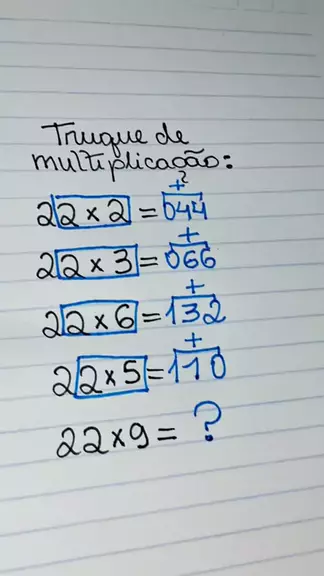 Truque de
multiplicação:
+
2
22 x 2 = 044
+
22 x 3 = 066
+
22 x 6 = 132
+
22 x 5 = 110
22 x 9 = ?